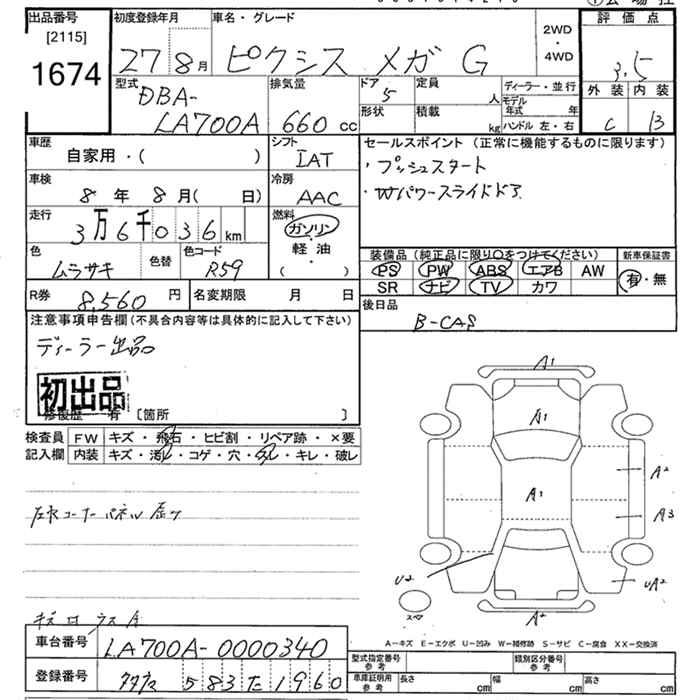 出品番号
[2115]
1674
初度登録年月
27 8月
車名・グレード
ピクシス メガ G
2WD
・
4WD
評価点
3.5
外装 内装
C B
型式
DBA-
LA700A
排気量
660 cc
ドア
5
形状
定員
人
積載
kg
ディーラー・並行
モデル年式 年
ハンドル 左・右
車歴
自家用・( )
シフト
IAT
車検
8年 8月( 日)
冷房
AAC
走行
3万6千036km
燃料
ガソリン
・
軽油
・
( )
色
ムラサキ
色替
色コード
R59
R券
8,560円
名変期限 月 日
セールスポイント(正常に機能するものに限ります)
・プッシュスタート
・Wパワースライドドア
装備品(純正品に限り○をつけてください)
新車保証書
PS PW ABS エアB AW
SR ナビ TV カワ
有・無
後日品
B-CAS
注意事項申告欄(不具合内容等は具体的に記入して下さい)
ディーラー出品
初出品
修復歴 有 [箇所 ]
検査員記入欄
FW キズ・飛石・ヒビ割・リペア跡・×要
内装 キズ・汚レ・コゲ・穴・スレ・キレ・破レ
A1
A1
A1
A2
A3
U2
UA2
スペア
A2
車台番号
LA700A-0000340
登録番号
583 た 1960
A-キズ E-エクボ U-凹み W-補修跡 S-サビ C-腐食 XX-交換済
型式指定番号
参考
類別区分番号
参考
車庫証明用
参考
長さ cm
幅 cm
高さ cm